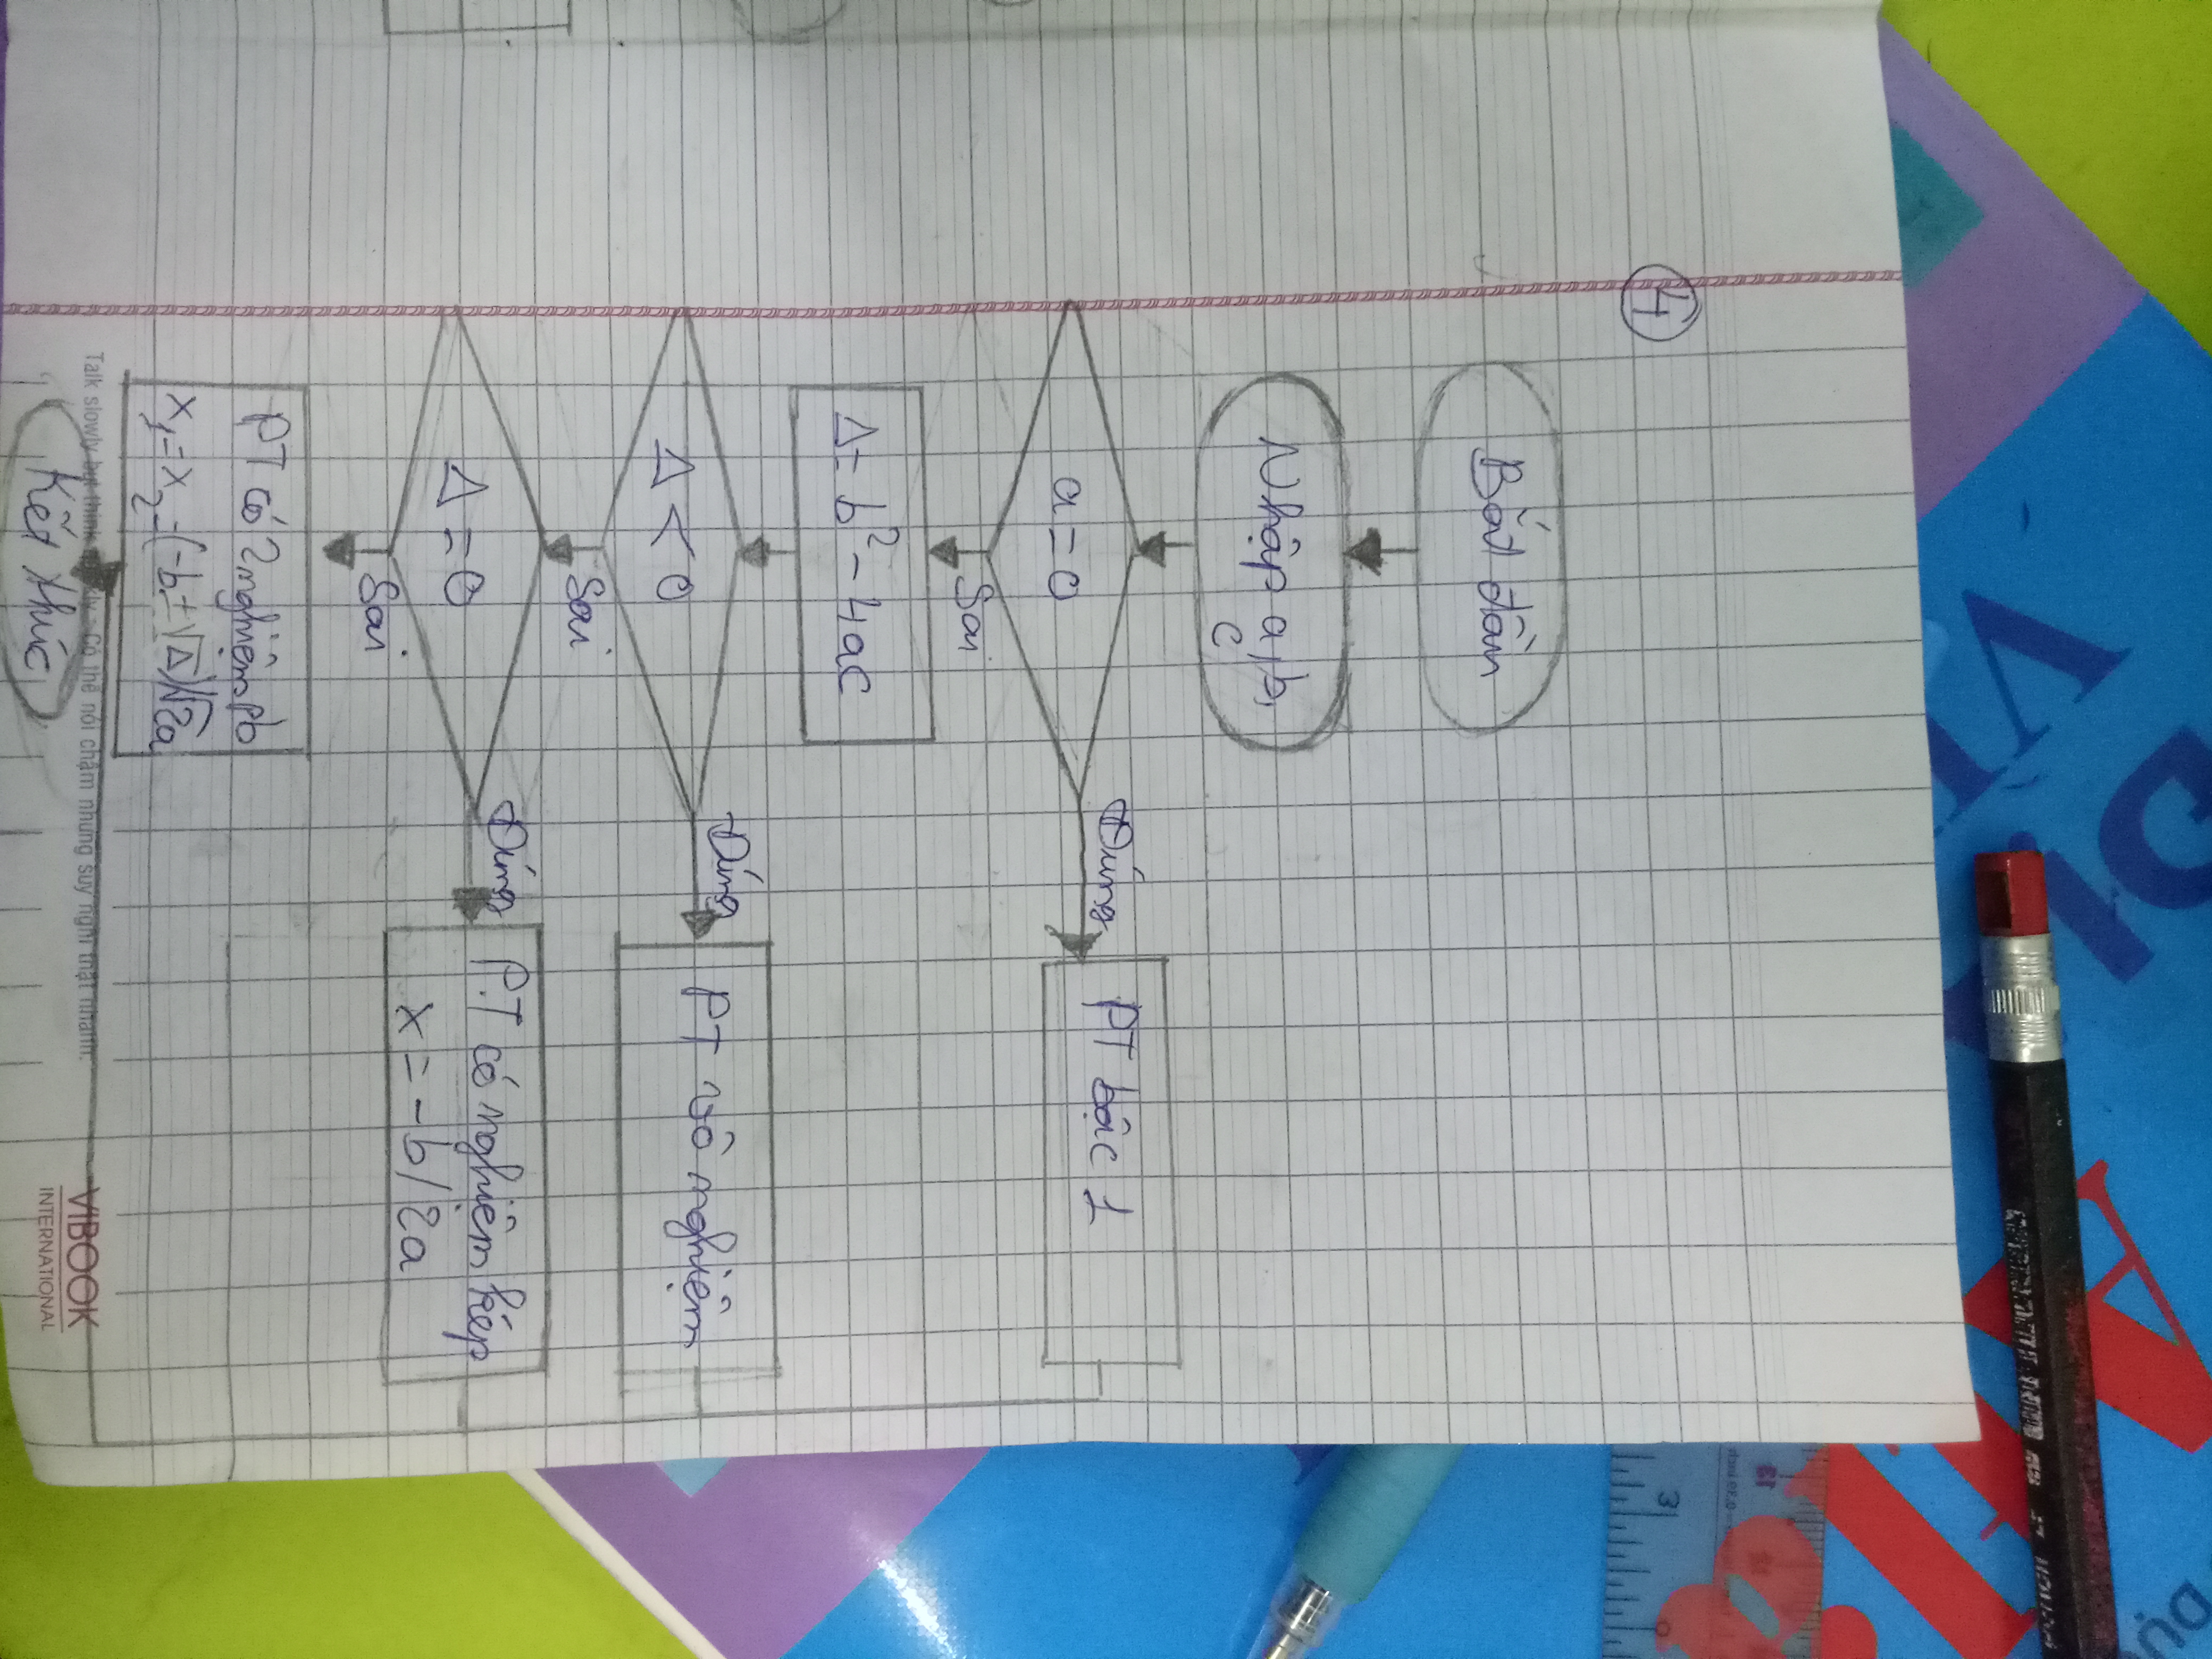 4
Bắt đầu
Nhập a, b,
c
a = 0
Đúng
PT bậc 1
Sai
Δ = b² - 4ac
Δ < 0
Đúng
PT vô nghiệm
Sai
Δ = 0
Đúng
P.T có nghiệm kép
x = -b/2a
Sai
PT có 2 nghiệm pb
x₁ = x₂ = (-b ± √Δ)/√2a
Talk slowly but think quickly - Có thể nói chậm nhưng suy nghĩ thật nhanh.
Kết thúc
VIBOOK
INTERNATIONAL